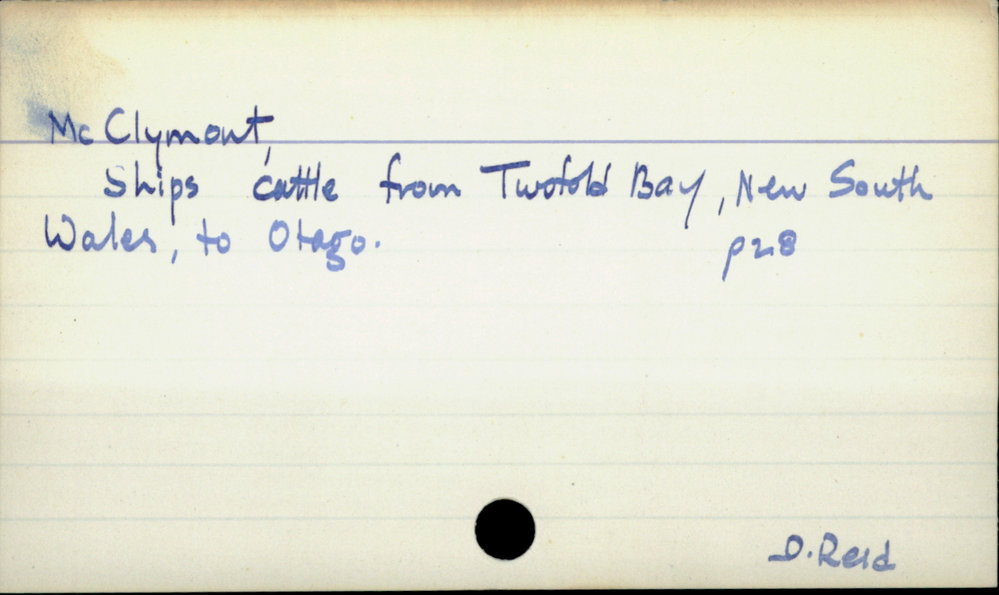 McClymont,
Ships cattle from Twofold Bay, New South
Wales, to Otago.
D. Reid